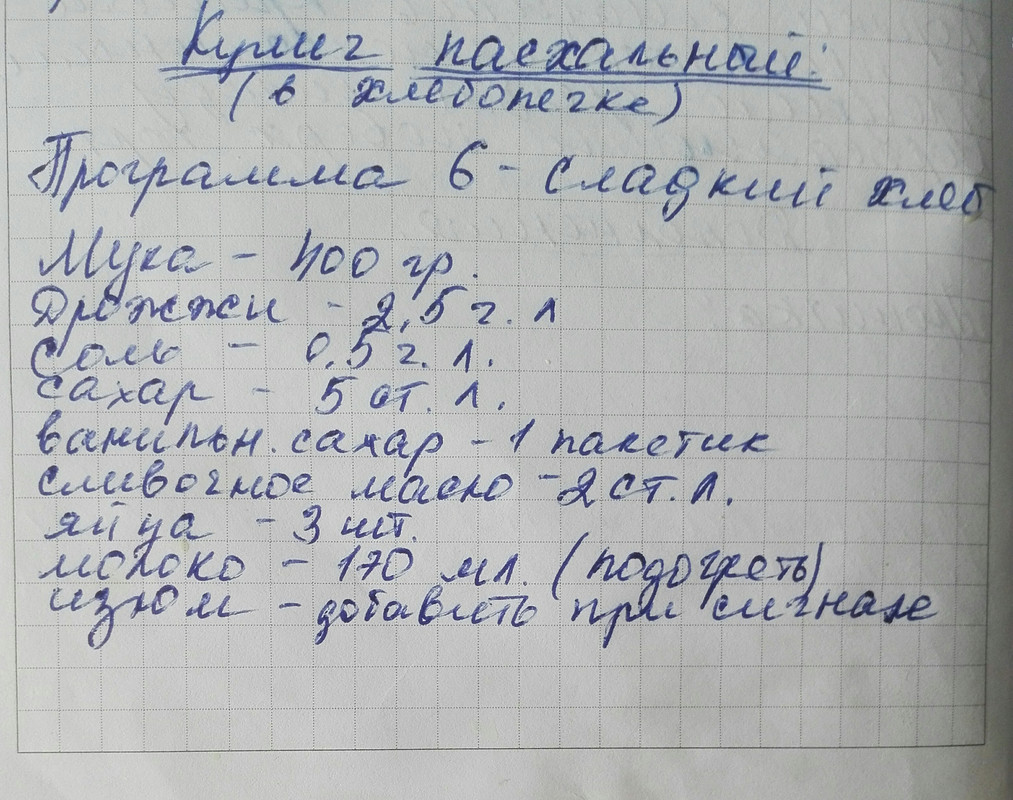 Кулич пасхальный:
(в хлебопечке)
Программа 6 - сладкий хлеб
Мука - 400 гр.
Дрожжи - 2,5 ч. л
Соль - 0,5 ч. л.
сахар - 5 ст. л.
ванильн. сахар - 1 пакетик
сливочное масло - 2 ст. л.
яйца - 3 шт.
молоко - 170 мл. (подогреть)
изюм - добавить при сигнале